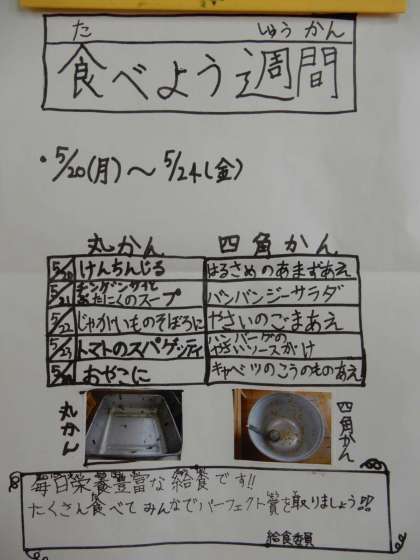 た しゅう かん
食べよう週間
・5/20(月)～5/24(金)
丸かん 四角かん
5/20 けんちんじる はるさめのあまずあえ
5/21 チンゲンサイと ぶたにくのスープ バンバンジーサラダ
5/22 じゃがいものそぼろに やさいのごまあえ
5/23 トマトのスパゲッティ ハンバーグの やさいソースがけ
5/24 おやこに キャベツのこうのものあえ
丸かん 四角かん
毎日栄養豊富な給食です!!
たくさん食べてみんなでパーフェクト賞を取りましょう!?
給食委員